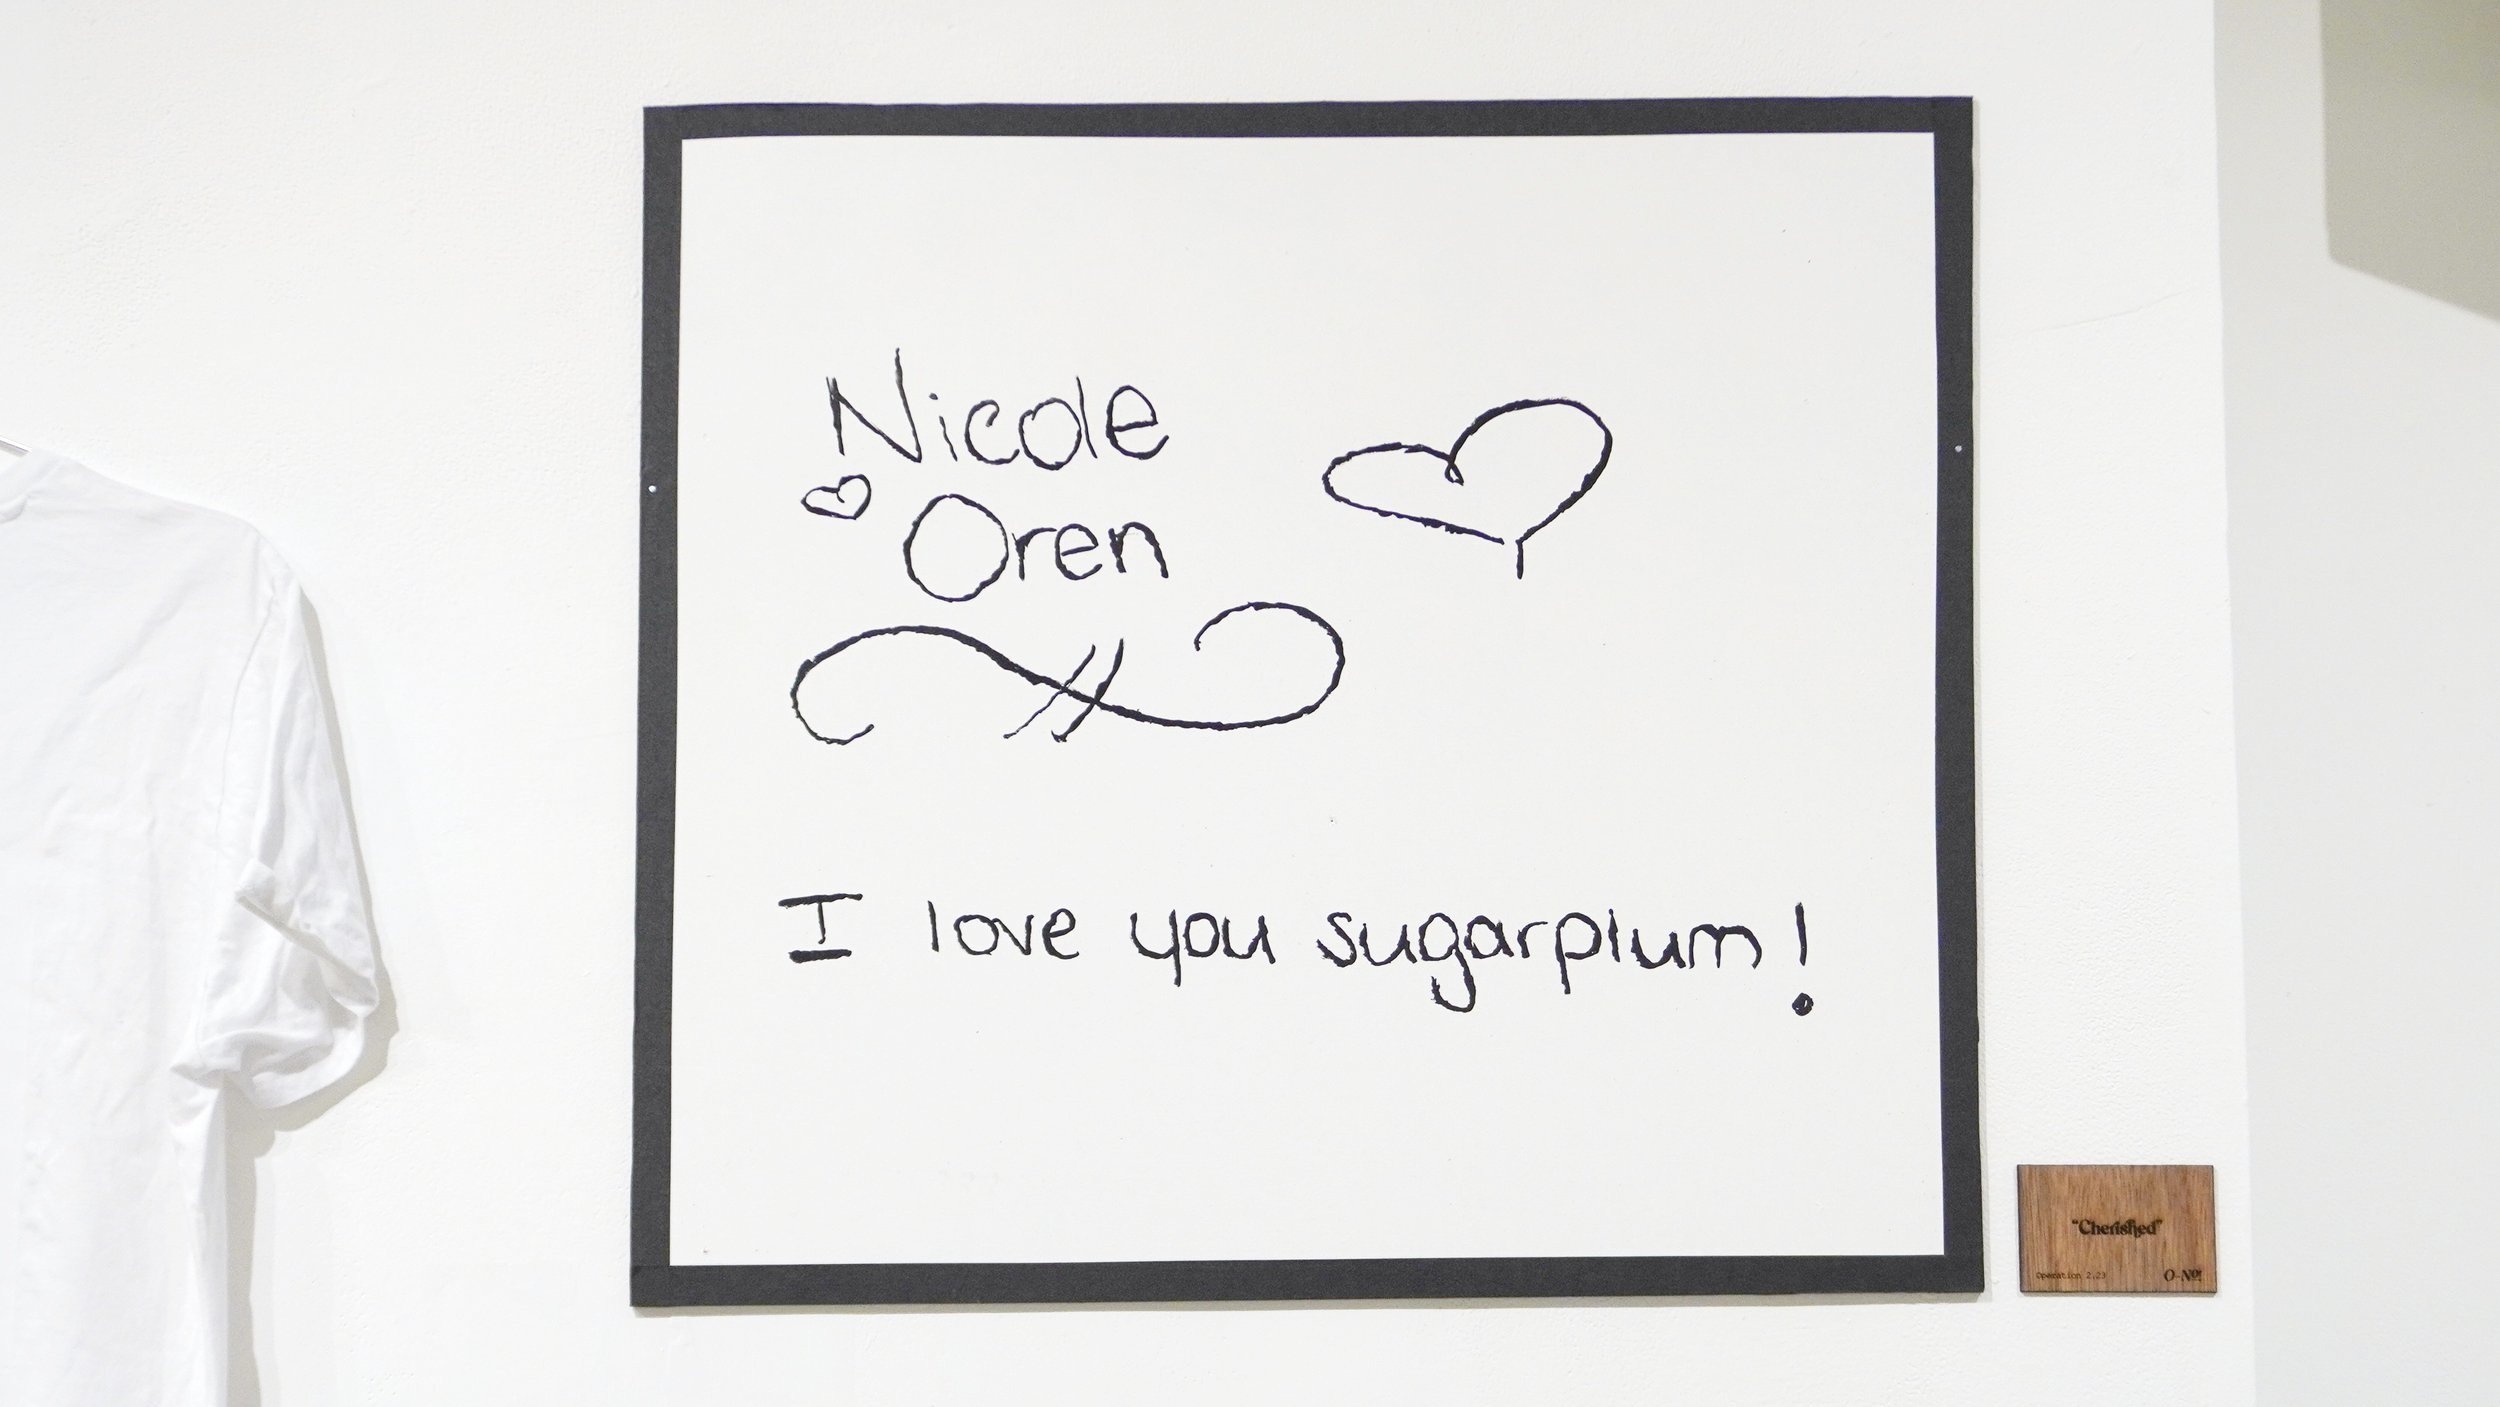 Nicole
Oren
I love you sugarplum!
"Cherished"
Operation 2.23
O-No!